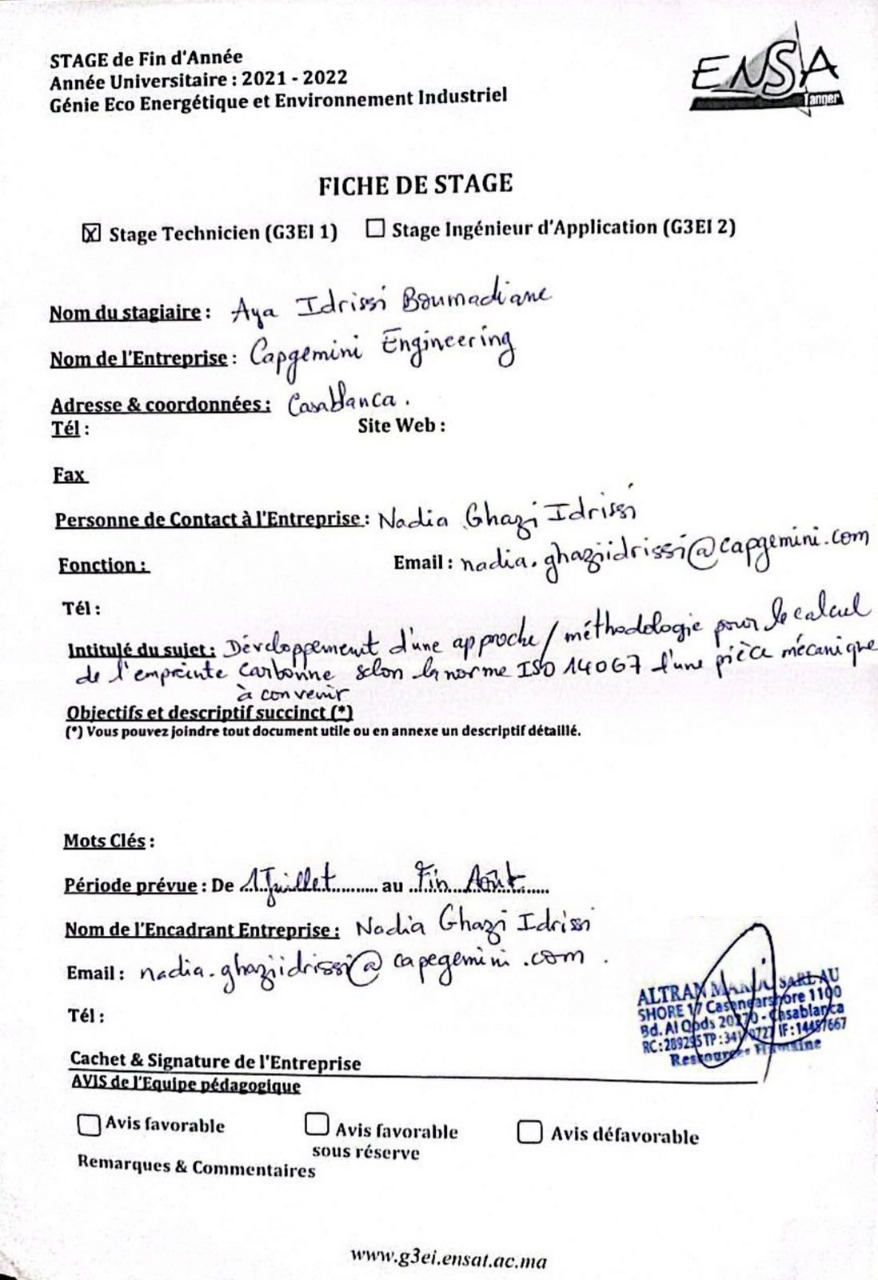 STAGE de Fin d'Année
Année Universitaire : 2021 - 2022
Génie Eco Energétique et Environnement Industriel
ENSA
Tanger
FICHE DE STAGE
☒ Stage Technicien (G3EI 1) ☐ Stage Ingénieur d'Application (G3EI 2)
Nom du stagiaire : Aya Idrissi Boumadiane
Nom de l'Entreprise : Capgemini Engineering
Adresse & coordonnées : Casablanca .
Tél : Site Web :
Fax
Personne de Contact à l'Entreprise : Nadia Ghazi Idrissi
Fonction : Email : nadia.ghaziidrissi@capgemini.com
Tél :
Intitulé du sujet : Développement d'une approche / méthodologie pour le calcul
de l'empreinte Carbonne selon la norme ISO 14067 d'une pièce mécanique
à convenir
Objectifs et descriptif succinct (*)
(*) Vous pouvez joindre tout document utile ou en annexe un descriptif détaillé.
Mots Clés :
Période prévue : De 1 Juillet au Fin Août
Nom de l'Encadrant Entreprise : Nadia Ghazi Idrissi
Email : nadia.ghaziidrissi@capegemini.com .
Tél :
ALTRAN SARL AU
SHORE 17 Casanearshore 1100
Bd. Al Qods 20270 - Casablanca
RC : 289295 TP : IF : 14497667
Ressources Humaine
Cachet & Signature de l'Entreprise
AVIS de l'Equipe pédagogique
☐ Avis favorable ☐ Avis favorable ☐ Avis défavorable
sous réserve
Remarques & Commentaires
www.g3ei.ensat.ac.ma